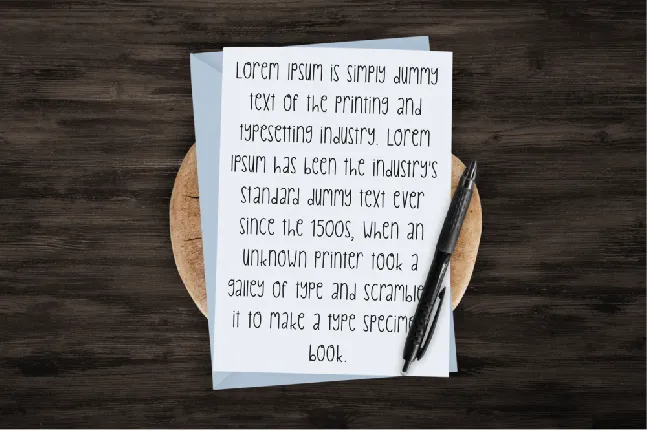 Lorem Ipsum is simply dummy
text of the printing and
typesetting industry. Lorem
Ipsum has been the industry's
standard dummy text ever
since the 1500s, when an
unknown printer took a
galley of type and scramble
it to make a type specime
book.